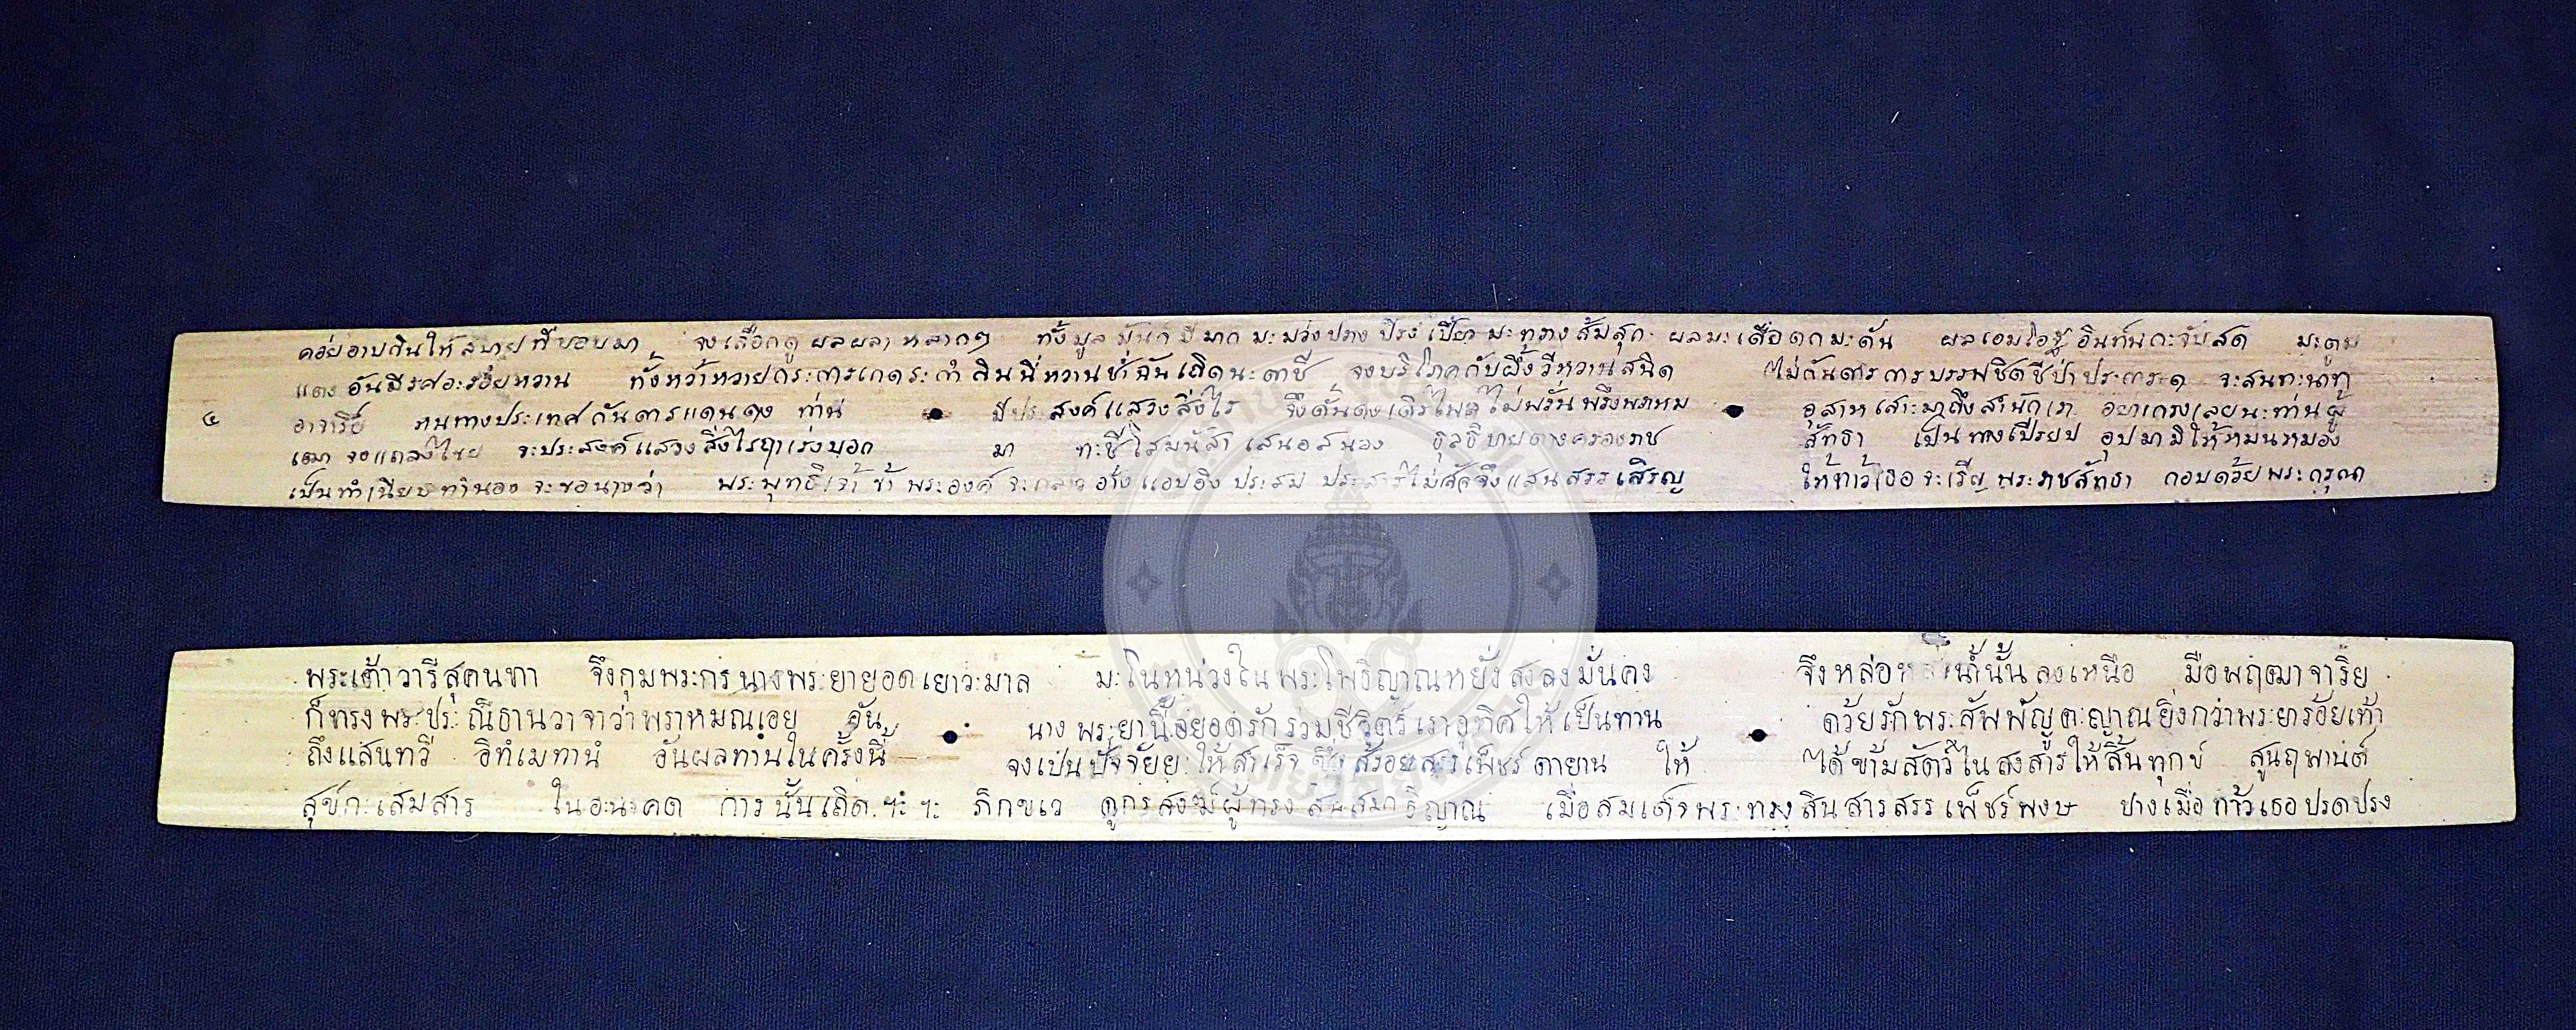 คอ่ยอาบกินให้สบาย ที่ชอบมา จงเลือกดู ผลผลา หลากๆ ทั้งมูลมันก มีมาก มะม่วงปราง ปริงเปรี้ยว มะทราง ส้มสุก ผลมะเดื่อดกมะดัน ผลเอม อินท์นกะจับสด มะตูม
แตง อันมีรศอะรอ่ยหวาน ทั้งหว้าหวายกระการเกดระกำ ลินนี่หวานช่ำ ฉันเถิดนะตาชี จงบริโภคกับผึ้งวีหวานสนิด ไม่กันดารการบรรพชิตชีป่าประการะด จะสนทะนาทา
๔ อาจาริย์ หนทางประเทศกันดารแดนดง ท่าน มีประสงค์แสวงสิ่งไร จึ่งดั้นดงเดิรไพรไม่พรั่นพรึงพราหม อุสาหเสาะมาถึงสำนักเรา อย่าเกรงเลยนะท่านผู้
เฒา จงแถลงไขย จะประสงค์แสวงสิ่งไรฤาเร่งบอก มา ทะชีโสมนัสา เสนอสนอง ธุลธิบายตามครองราช สัทธา เป็นทางเปรียบ อุปมามิให้หมนหมอง
เป็นทำเนียบทำนอง จะขอนางว่า พระพุทธิเจ้า ข้า พระองค์ จะกล่าว อ้างแอบอิง ประสม ประสารไม่ศัจจึงแสนสรรเสิรญ ให้ท้าวเธอ จะเริญ พระราชสัทธา กอบดว้ย พระกรุณา
พระเต้าวารีสุคนทา จึงกุมพระกร นางพระยายอดเยาวะมาล มะโนหน่วงใน พระโพธิญาณหยั่งลงลงมั่นคง จึงหล่อ น้ำนั้น ลงเหนือ มือพฤฒาจาริย
ก็ทรงพระประณิธานวาจาว่าพราหมณเอย อัน นาง พระยานี้อยอดรักรว่มชีวิตร์ เราอุทิศให้เป็นทาน ดว้ยรักพระสัพพัญญูตะญาณยิ่งกว่าพระยารอ้ยเท้า
ถึงแสนทวี อิทํเมทานํ อันผลทานในครั้งนี้ จงเป็นปัจจัยย ให้สำเร็จ แก่ สรอ้ยสรรเพ็ชร์ดายาน ให้ ได้ข้ามสัตว์ในสงสารให้สิ้นทุกข์ สูนฤพานต์
สุขกะเสมสาร ในอะนะคต การ นั้นเถิด ฯะ ฯะ ภิกขเว ดูกรสงฆ์ผู้ทรง ศีลสมาธิญาณ เมื่อสมเด็จพระทรงสินสารสรรเพ็ชร์พงษ ปางเมื่อ ท้าวเธอปรดปรง